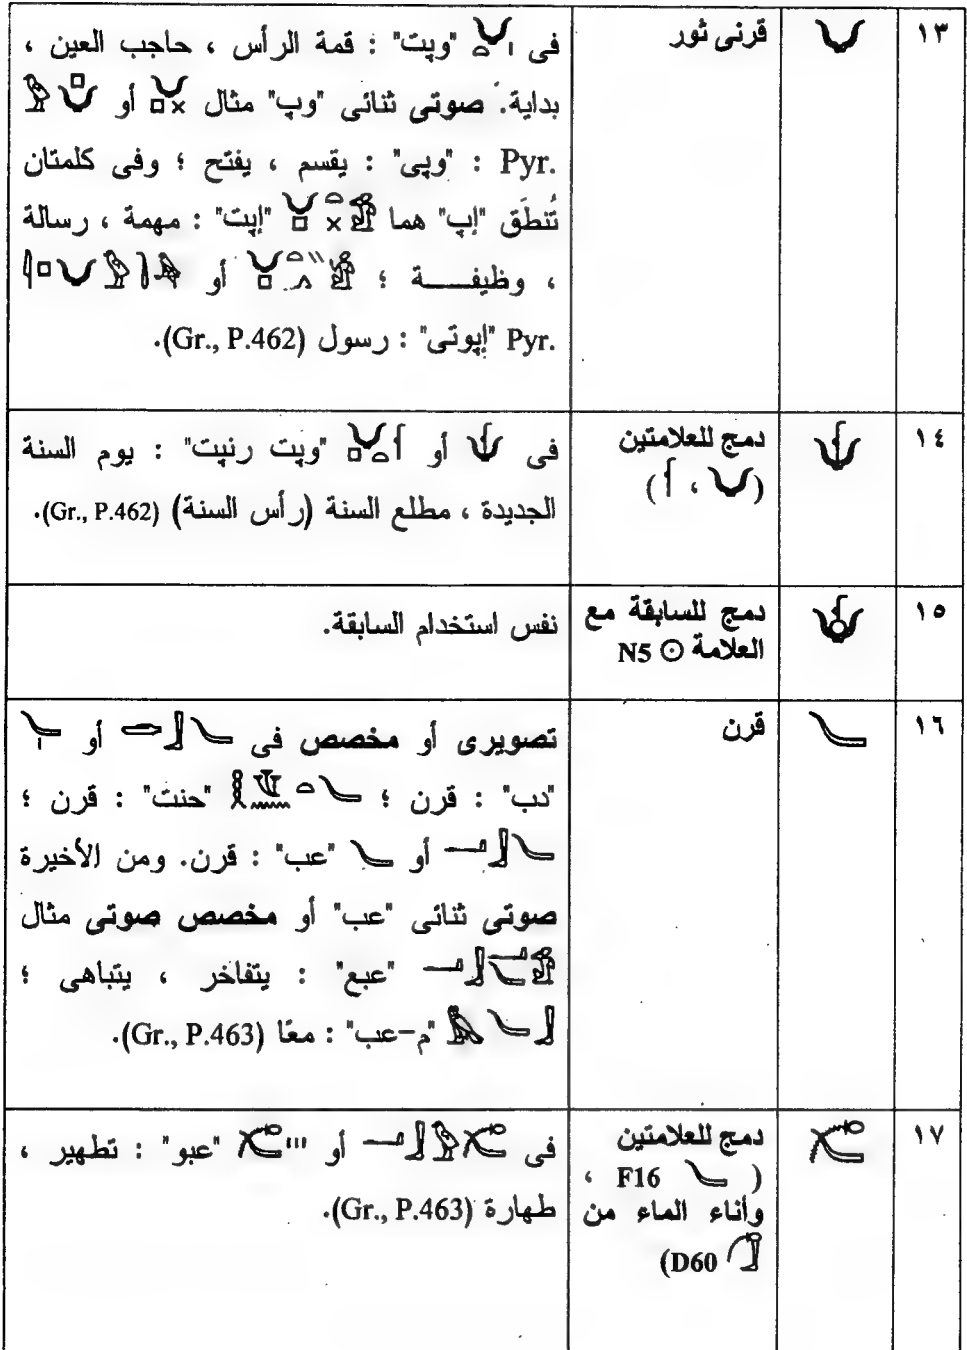 ١٣
𓄋
قرنى ثور
فى "وپت" : قمة الرأس ، حاجب العين ،
بداية. صوتى ثنائى "وپ" مثال أو
Pyr. : "وپى" : يقسم ، يفتح ؛ وفى كلمتان
تُنطَق "إپ" هما "إپت" : مهمة ، رسالة
، وظيفـــــة ؛ أو
Pyr. "إپوتى" : رسول (Gr., P.462).
١٤
𓄍
دمج للعلامتين
(𓄋 ، 𓆳)
فى 𓄍 أو "وپت رنپت" : يوم السنة
الجديدة ، مطلع السنة (رأس السنة) (Gr., P.462).
١٥
𓄎
دمج للسابقة مع
العلامة 𓇳 N5
نفس استخدام السابقة.
١٦
𓄏
قرن
تصويرى أو مخصص فى أو
"دب" : قرن ؛ "حنت" : قرن ؛
أو 𓄏 "عب" : قرن. ومن الأخيرة
صوتى ثنائى "عب" أو مخصص صوتى مثال
"عبع" : يتفاخر ، يتباهى ؛
"م-عب" : معًا (Gr., P.463).
١٧
𓄐
دمج للعلامتين
( 𓄏 F16 ،
وأناء الماء من
D60)
فى أو "عبو" : تطهير ،
طهارة (Gr., P.463).